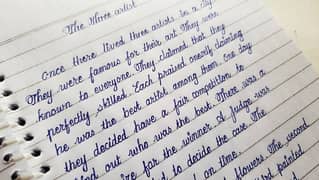 The three artist
Once there lived three artists in a city.
They were famous for their art. They were
known to everyone. They claimed that they
perfectly skilled. Each praised oneself claiming
he was the best artist among them. One day
they decided have a fair competition to
out who was the best. There was a
for the winner. A judge was
to decide the case. The
on time.
flowers. The second
painted